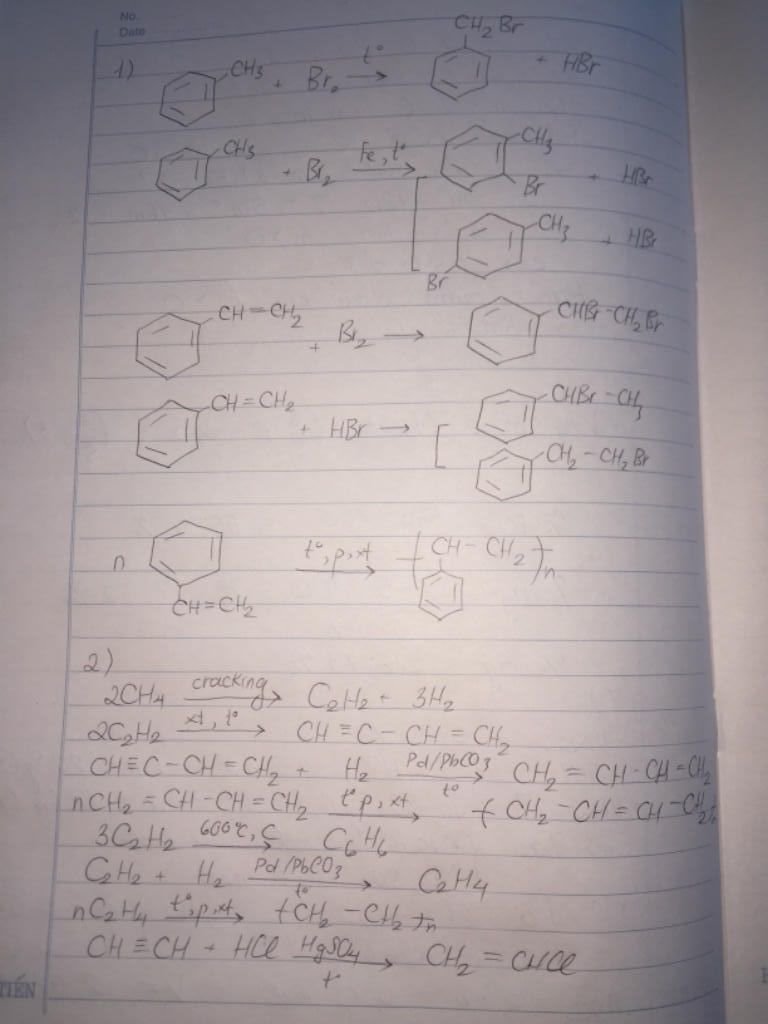 No.
Date
1) CH3 + Br2 t° → CH2Br + HBr
CH3 + Br2 Fe, t° → CH3 Br + HBr
CH3 Br + HBr
CH=CH2 + Br2 → CHBr-CH2Br
CH=CH2 + HBr → CHBr-CH3
CH2-CH2Br
n CH=CH2 t°, p, xt → (CH-CH2)n
2)
2CH4 cracking → C2H2 + 3H2
2C2H2 xt, t° → CH≡C-CH=CH2
CH≡C-CH=CH2 + H2 Pd/PbCO3 t° → CH2=CH-CH=CH2
nCH2=CH-CH=CH2 t° p, xt → (CH2-CH=CH-CH2)n
3C2H2 600°C, C → C6H6
C2H2 + H2 Pd/PbCO3 t° → C2H4
nC2H4 t°, p, xt → (CH2-CH2)n
CH≡CH + HCl HgSO4 → CH2=CHCl
TIẾN